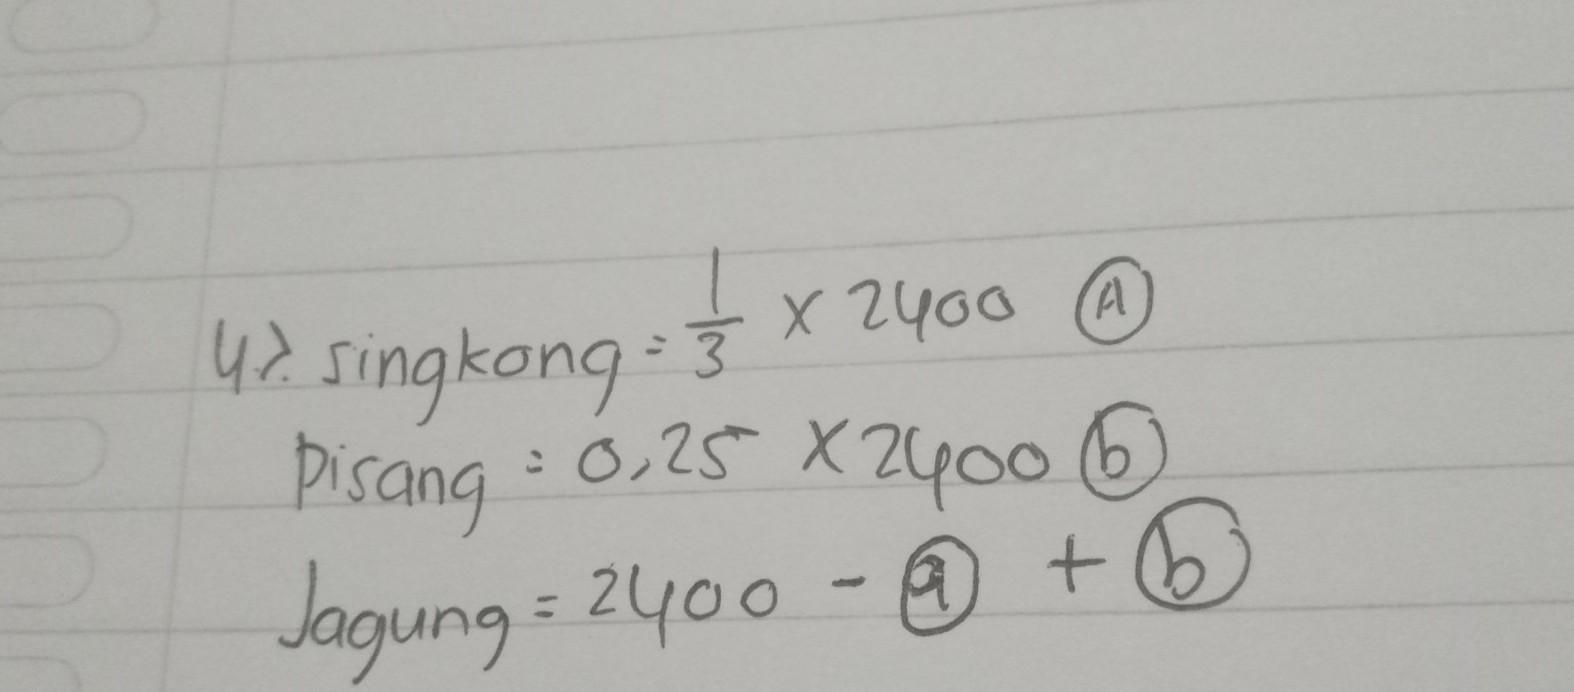 4). singkong = 1/3 x 2400 (A)
pisang = 0,25 x 2400 (b)
Jagung = 2400 - (a) + (b)